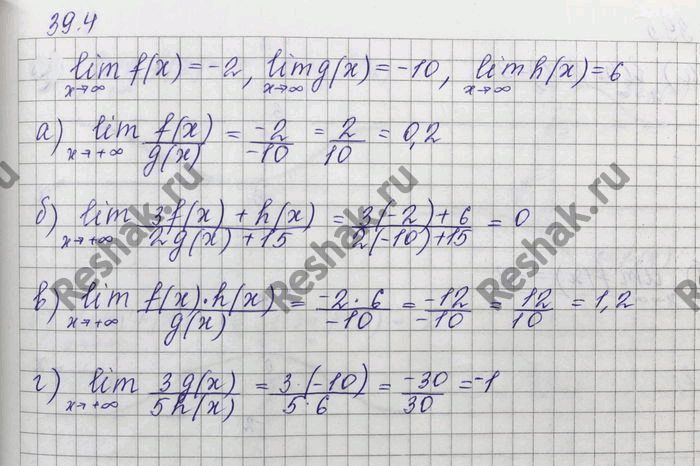 39.4
lim x→∞ f(x) = -2, lim x→∞ g(x) = -10, lim x→∞ h(x) = 6
а) lim x→+∞ f(x)/g(x) = -2/-10 = 2/10 = 0,2
б) lim x→+∞ 3f(x) + h(x)/2g(x) + 15 = 3(-2) + 6/2(-10) + 15 = 0
в) lim x→+∞ f(x)·h(x)/g(x) = -2·6/-10 = -12/-10 = 12/10 = 1,2
г) lim x→+∞ 3g(x)/5h(x) = 3·(-10)/5·6 = -30/30 = -1
Reshak.ru
Reshak.ru
Reshak.ru